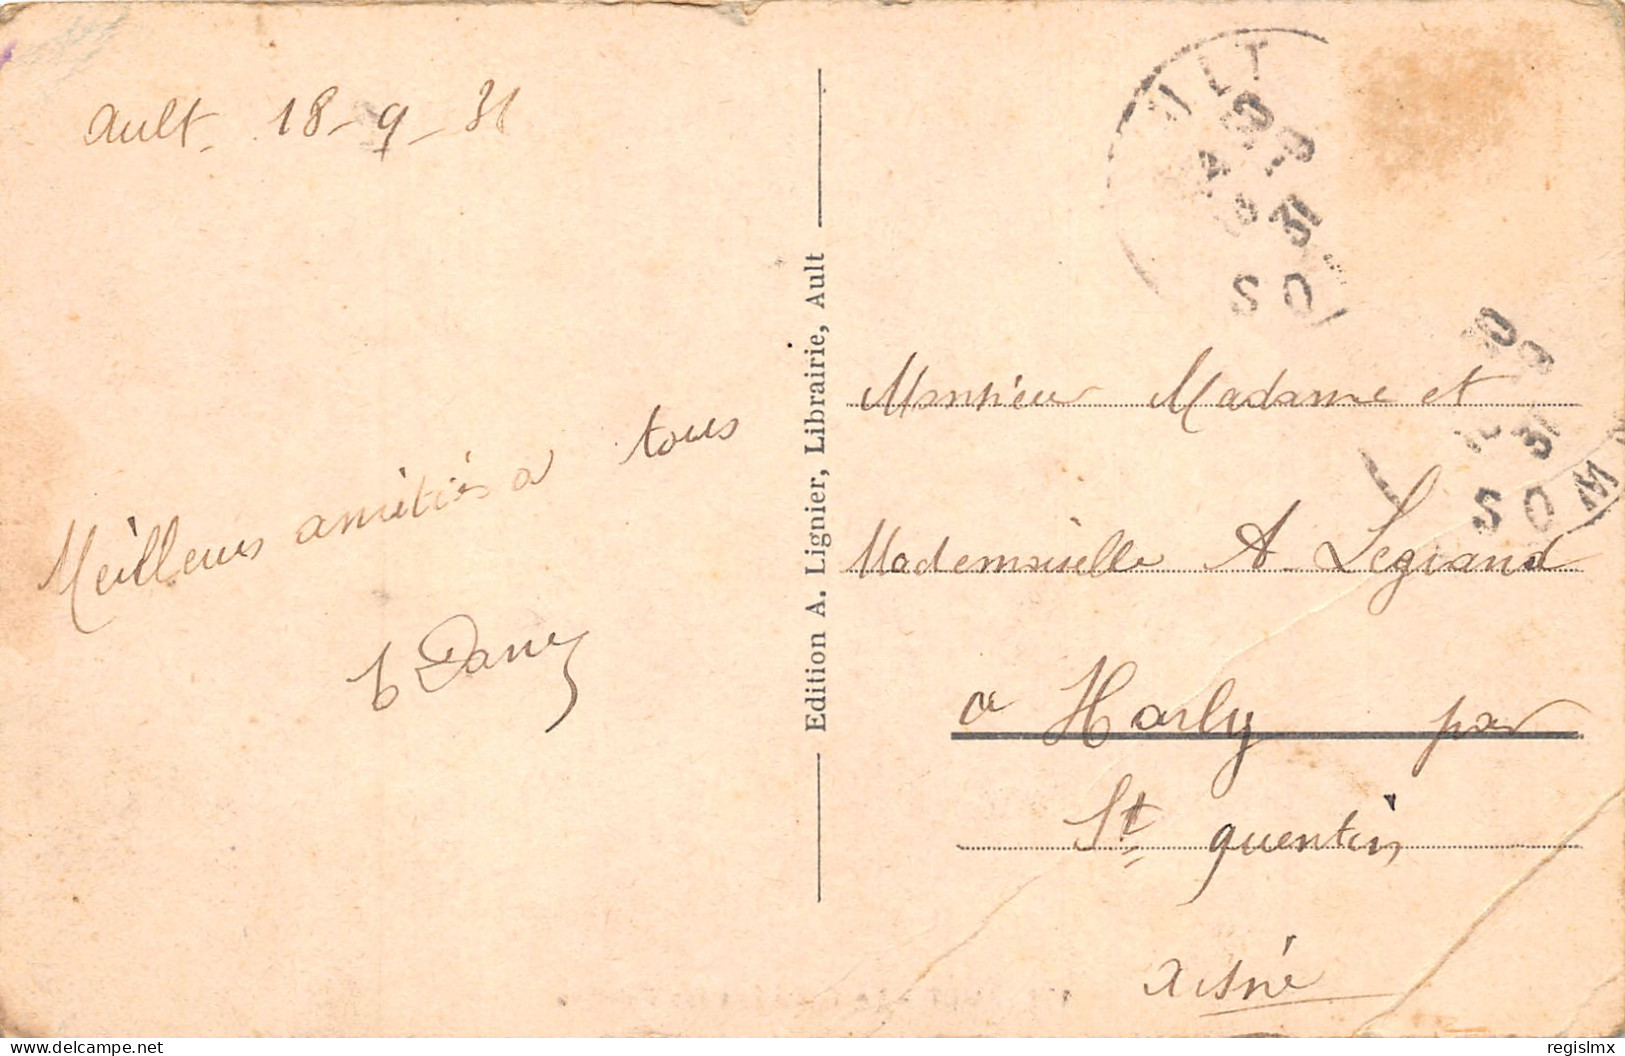 Ault. 18-9-31
Meilleurs amitiés à tous
Edition A. Lignier, Librairie, Ault
ULT
31
SO
31
SOMM
Monsieur Madame et
Mademoiselle A. Legrand
à Harly par
St quentin
Aisne
delcampe.net
regislmx